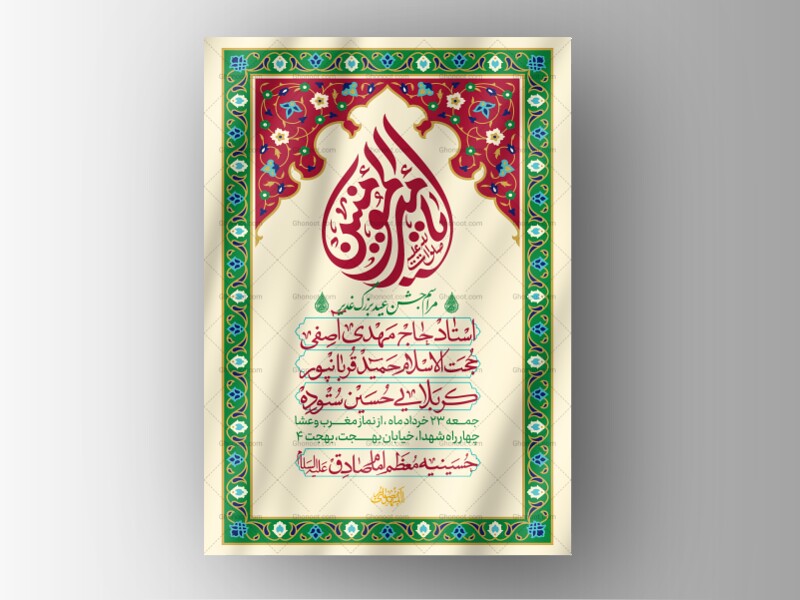 یا امیرالمؤمنین
صلوات الله علیه
مراسم جشن عید بزرگ غدیر
استاد حاج مهدی آصفی
حجت الاسلام حمید قربانپور
کربلایی حسین ستوده
جمعه ۲۳ خرداد ماه، از نماز مغرب و عشا
چهارراه شهدا، خیابان بهجت، بهجت ۴
حسینیه معظم امام صادق علیه السلام
Ghonoot.com